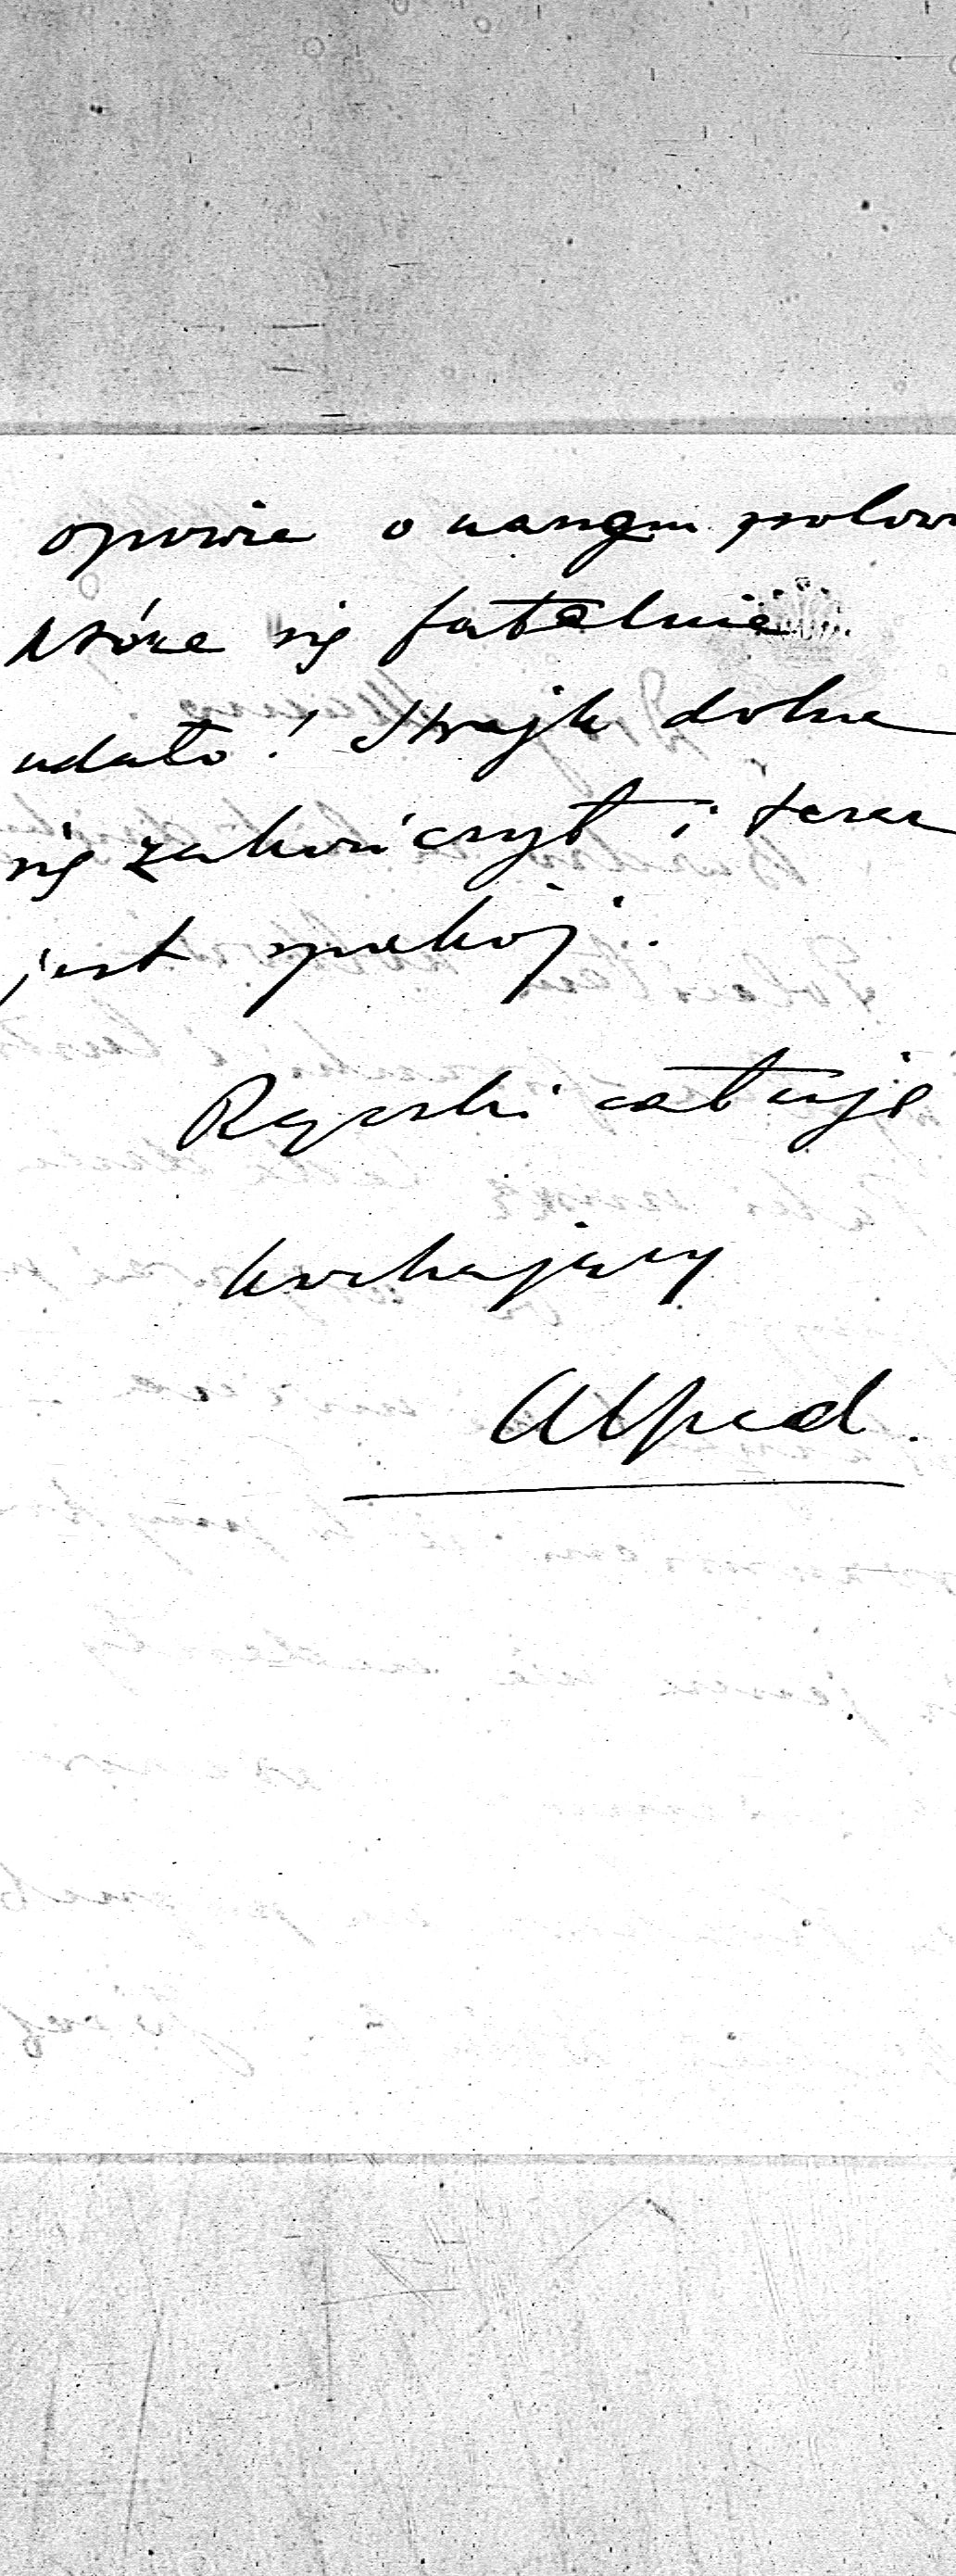 opowie o naszym polow
które się fatalnie
udało! Strajk dolne
się zakończył i teraz
jest spokój.
Rączki całuję
kochający
Alfred.